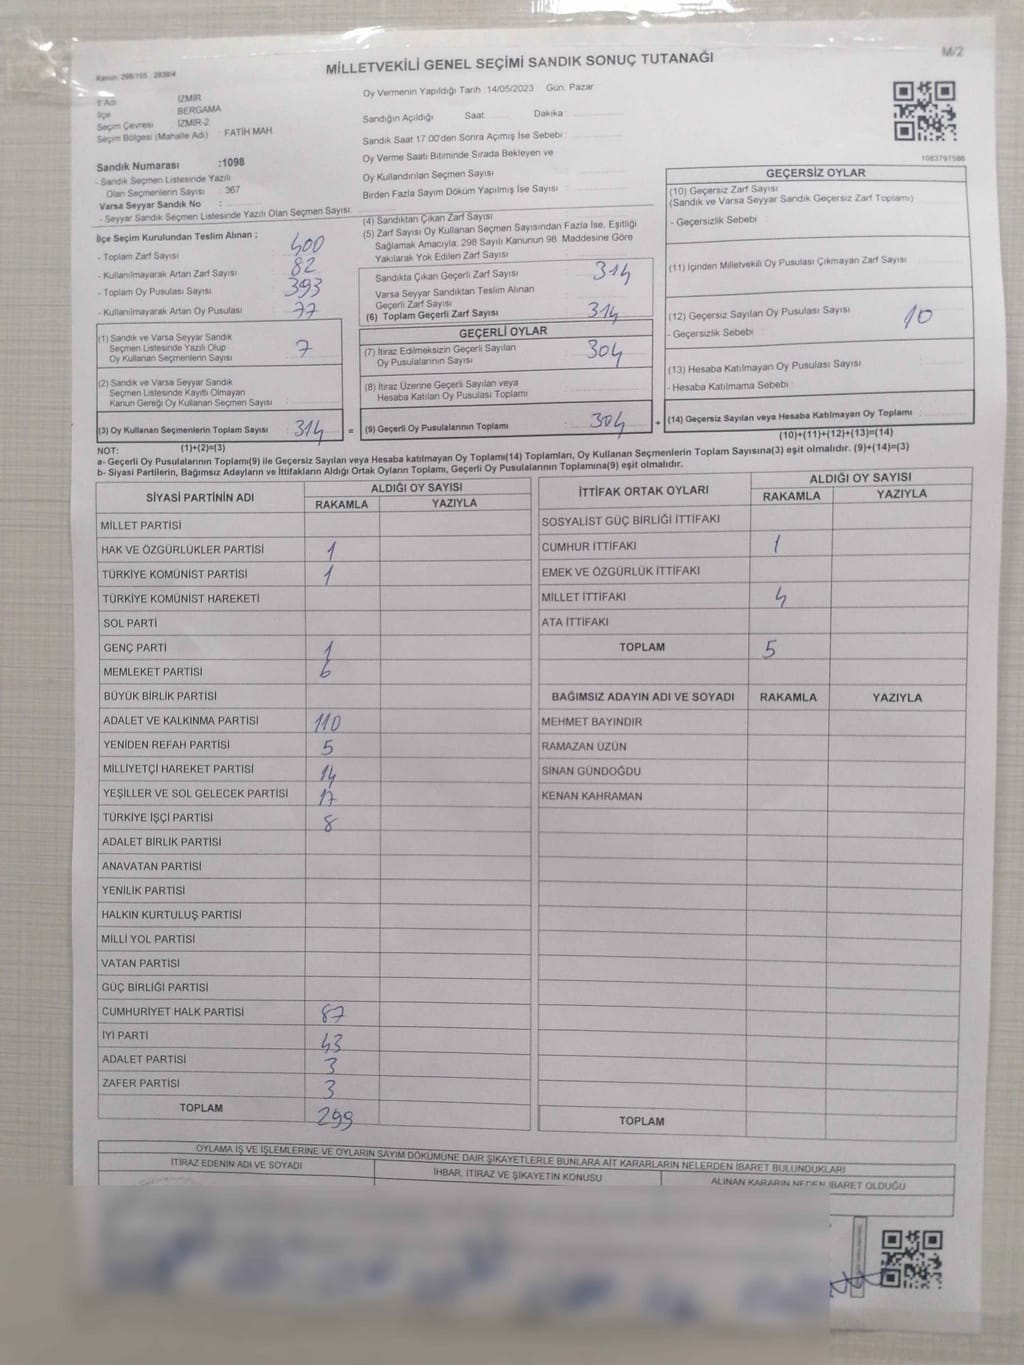 M/2
Kanun: 298/105 , 2839/4
MİLLETVEKİLİ GENEL SEÇİMİ SANDIK SONUÇ TUTANAĞI
İl Adı İZMİR
İlçe BERGAMA
Seçim Çevresi İZMİR-2
Seçim Bölgesi (Mahalle Adı) FATİH MAH
Sandık Numarası :1098
- Sandık Seçmen Listesinde Yazılı
Olan Seçmenlerin Sayısı : 367
Varsa Seyyar Sandık No :
- Seyyar Sandık Seçmen Listesinde Yazılı Olan Seçmen Sayısı:
Oy Vermenin Yapıldığı Tarih :14/05/2023 Gün: Pazar
Sandığın Açıldığı Saat: Dakika :
Sandık Saat 17.00'den Sonra Açılmış İse Sebebi :
Oy Verme Saati Bitiminde Sırada Bekleyen ve
Oy Kullandırılan Seçmen Sayısı :
Birden Fazla Sayım Döküm Yapılmış İse Sayısı :
1083797586
İlçe Seçim Kurulundan Teslim Alınan ;
- Toplam Zarf Sayısı : 400
- Kullanılmayarak Artan Zarf Sayısı : 82
- Toplam Oy Pusulası Sayısı : 393
- Kullanılmayarak Artan Oy Pusulası : 77
(1) Sandık ve Varsa Seyyar Sandık
Seçmen Listesinde Yazılı Olup
Oy Kullanan Seçmenlerin Sayısı : 7
(2) Sandık ve Varsa Seyyar Sandık
Seçmen Listesinde Kayıtlı Olmayan
Kanun Gereği Oy Kullanan Seçmen Sayısı :
(3) Oy Kullanan Seçmenlerin Toplam Sayısı : 314 =
(4) Sandıktan Çıkan Zarf Sayısı :
(5) Zarf Sayısı Oy Kullanan Seçmen Sayısından Fazla İse, Eşitliği
Sağlamak Amacıyla; 298 Sayılı Kanunun 98. Maddesine Göre
Yakılarak Yok Edilen Zarf Sayısı :
Sandıkta Çıkan Geçerli Zarf Sayısı : 314
Varsa Seyyar Sandıktan Teslim Alınan
Geçerli Zarf Sayısı :
(6) Toplam Geçerli Zarf Sayısı : 314
GEÇERLİ OYLAR
(7) İtiraz Edilmeksizin Geçerli Sayılan
Oy Pusulalarının Sayısı : 304
(8) İtiraz Üzerine Geçerli Sayılan veya
Hesaba Katılan Oy Pusulası Toplamı :
(9) Geçerli Oy Pusulalarının Toplamı : 304 +
GEÇERSİZ OYLAR
(10) Geçersiz Zarf Sayısı :
(Sandık ve Varsa Seyyar Sandık Geçersiz Zarf Toplamı)
- Geçersizlik Sebebi :
(11) İçinden Milletvekili Oy Pusulası Çıkmayan Zarf Sayısı :
(12) Geçersiz Sayılan Oy Pusulası Sayısı : 10
- Geçersizlik Sebebi :
(13) Hesaba Katılmayan Oy Pusulası Sayısı :
- Hesaba Katılmama Sebebi :
(14) Geçersiz Sayılan veya Hesaba Katılmayan Oy Toplamı :
NOT: (1)+(2)=(3) (10)+(11)+(12)+(13)=(14)
a- Geçerli Oy Pusulalarının Toplamı(9) ile Geçersiz Sayılan veya Hesaba Katılmayan Oy Toplamı(14) Toplamları, Oy Kullanan Seçmenlerin Toplam Sayısına(3) eşit olmalıdır. (9)+(14)=(3)
b- Siyasi Partilerin, Bağımsız Adayların ve İttifakların Aldığı Ortak Oyların Toplamı, Geçerli Oy Pusulalarının Toplamına(9) eşit olmalıdır.
SİYASİ PARTİNİN ADI ALDIĞI OY SAYISI
RAKAMLA YAZIYLA
MİLLET PARTİSİ
HAK VE ÖZGÜRLÜKLER PARTİSİ 1
TÜRKİYE KOMÜNİST PARTİSİ 1
TÜRKİYE KOMÜNİST HAREKETİ
SOL PARTİ
GENÇ PARTİ 1
MEMLEKET PARTİSİ 6
BÜYÜK BİRLİK PARTİSİ
ADALET VE KALKINMA PARTİSİ 110
YENİDEN REFAH PARTİSİ 5
MİLLİYETÇİ HAREKET PARTİSİ 14
YEŞİLLER VE SOL GELECEK PARTİSİ 17
TÜRKİYE İŞÇİ PARTİSİ 8
ADALET BİRLİK PARTİSİ
ANAVATAN PARTİSİ
YENİLİK PARTİSİ
HALKIN KURTULUŞ PARTİSİ
MİLLİ YOL PARTİSİ
VATAN PARTİSİ
GÜÇ BİRLİĞİ PARTİSİ
CUMHURİYET HALK PARTİSİ 87
İYİ PARTİ 43
ADALET PARTİSİ 3
ZAFER PARTİSİ 3
TOPLAM 299
İTTİFAK ORTAK OYLARI ALDIĞI OY SAYISI
RAKAMLA YAZIYLA
SOSYALİST GÜÇ BİRLİĞİ İTTİFAKI
CUMHUR İTTİFAKI 1
EMEK VE ÖZGÜRLÜK İTTİFAKI
MİLLET İTTİFAKI 4
ATA İTTİFAKI
TOPLAM 5
BAĞIMSIZ ADAYIN ADI VE SOYADI RAKAMLA YAZIYLA
MEHMET BAYINDIR
RAMAZAN UZÜN
SİNAN GÜNDOĞDU
KENAN KAHRAMAN
TOPLAM
OYLAMA İŞ VE İŞLEMLERİNE VE OYLARIN SAYIM DÖKÜMÜNE DAİR ŞİKAYETLERLE BUNLARA AİT KARARLARIN NELERDEN İBARET BULUNDUKLARI
İTİRAZ EDENİN ADI VE SOYADI İHBAR, İTİRAZ VE ŞİKAYETİN KONUSU ALINAN KARARIN NEDEN İBARET OLDUĞU